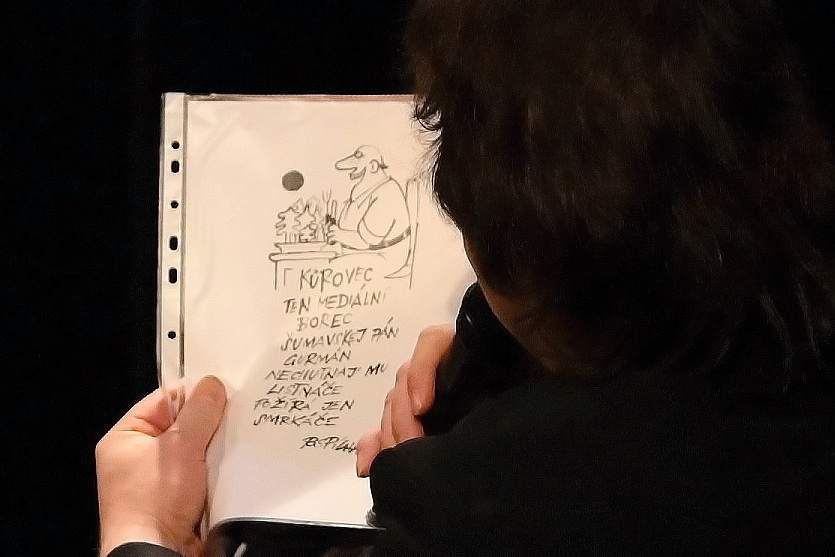 KŮROVEC
TEN MEDIÁLNÍ
BOREC
ŠUMAVSKEJ PÁN
GURMÁN
NECHUTNAJÍ MU
LISTNÁČE
POŽÍRÁ JEN
SMRKÁČE